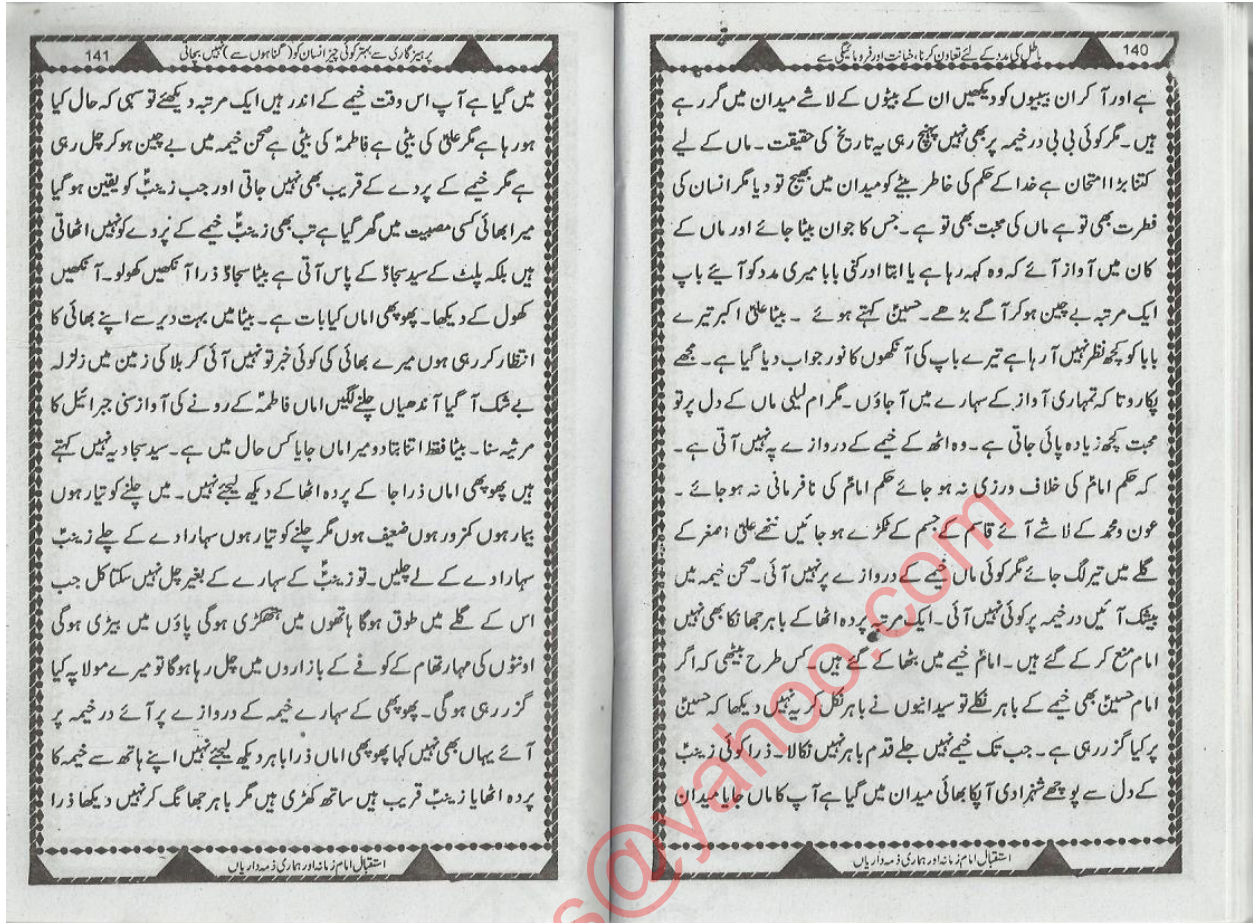 140
باطل کی مدد کے لئے تعاون کرنا، خیانت اور فرومائیگی ہے
ہے اور آ کر ان بیبیوں کو دیکھیں ان کے بیٹوں کے لاشے میدان میں گر رہے
ہیں۔ مگر کوئی بی بی در خیمہ پر بھی نہیں پہنچ رہی یہ تاریخ کی حقیقت۔ ماں کے لیے
کتنا بڑا امتحان ہے خدا کے حکم کی خاطر بیٹے کو میدان میں بھیج تو دیا مگر انسان کی
فطرت بھی تو ہے ماں کی محبت بھی تو ہے۔ جس کا جوان بیٹا جائے اور ماں کے
کان میں آواز آئے کہ وہ کہہ رہا ہے یا ابتا ادرکنی بابا میری مدد کو آئیے باپ
ایک مرتبہ بے چین ہو کر آگے بڑھے۔ حسینؑ کہتے ہوئے ۔ بیٹا علیؑ اکبر تیرے
بابا کو کچھ نظر نہیں آ رہا ہے تیرے باپ کی آنکھوں کا نور جواب دیا گیا ہے۔ مجھے
پکارو تا کہ تمہاری آواز کے سہارے میں آ جاؤں۔ مگر ام لیلی ماں کے دل پر تو
محبت کچھ زیادہ پائی جاتی ہے۔ وہ اٹھ کے خیمے کے دروازے پہ نہیں آتی ہے۔
کہ حکم امامؑ کی خلاف ورزی نہ ہو جائے حکم امامؑ کی نافرمانی نہ ہو جائے ۔
عون و محمد کے لاشے آئے قاسم کے جسم کے ٹکڑے ہو جائیں ننھے علیؑ اصغر کے
گلے میں تیر لگ جائے مگر کوئی ماں خیمے کے دروازے پر نہیں آئی۔ صحن خیمہ میں
بیشک آئیں در خیمہ پر کوئی نہیں آئی۔ ایک مرتبہ پردہ اٹھا کے باہر جھانکا بھی نہیں
امام منع کر کے گئے ہیں۔ امامؑ خیمے میں بٹھا کے گئے ہیں۔ کس طرح بیٹھی کہ اگر
امام حسینؑ بھی خیمے کے باہر نکلے تو سیدانیوں نے باہر نکل کر یہ نہیں دیکھا کہ حسینؑ
پر کیا گزر رہی ہے۔ جب تک خیمے نہیں جلے قدم باہر نہیں نکالا۔ ذرا کوئی زینبؑ
کے دل سے پوچھے شہزادی آپکا بھائی میدان میں گیا ہے آپ کا ماں جایا میدان
استقبال امام زمانہ اور ہماری ذمہ داریاں
141
پرہیز گاری سے بہتر کوئی چیز انسان کو (گناہوں سے) نہیں بچاتی
میں گیا ہے آپ اس وقت خیمے کے اندر ہیں ایک مرتبہ دیکھئے تو سہی کہ حال کیا
ہو رہا ہے مگر علیؑ کی بیٹی ہے فاطمہؑ کی بیٹی ہے صحن خیمہ میں بے چین ہو کر چل رہی
ہے مگر خیمے کے پردے کے قریب بھی نہیں جاتی اور جب زینبؑ کو یقین ہو گیا
میرا بھائی کسی مصیبت میں گھر گیا ہے تب بھی زینبؑ خیمے کے پردے کو نہیں اٹھاتی
ہیں بلکہ پلٹ کے سید سجادؑ کے پاس آتی ہے بیٹا سجادؑ ذرا آنکھیں کھولو۔ آنکھیں
کھول کے دیکھا۔ پھوپھی اماں کیا بات ہے۔ بیٹا میں بہت دیر سے اپنے بھائی کا
انتظار کر رہی ہوں میرے بھائی کی کوئی خبر تو نہیں آئی کربلا کی زمین میں زلزلہ
بے شک آ گیا آندھیاں چلنے لگیں اماں فاطمہؑ کے رونے کی آواز سنی جبرائیل کا
مرثیہ سنا۔ بیٹا فقط اتنا بتا دو میرا ماں جایا کس حال میں ہے۔ سید سجاد یہ نہیں کہتے
ہیں پھوپھی اماں ذرا جا کے پردہ اٹھا کے دیکھ لیجئے نہیں۔ میں چلنے کو تیار ہوں
بیمار ہوں کمزور ہوں ضعیف ہوں مگر چلنے کو تیار ہوں سہارا دے کے چلے زینبؑ
سہارا دے کے لے چلیں۔ تو زینبؑ کے سہارے کے بغیر چل نہیں سکتا کل جب
اس کے گلے میں طوق ہوگا ہاتھوں میں ہتھکڑی ہوگی پاؤں میں بیڑی ہوگی
اونٹوں کی مہار تھام کے کوفے کے بازاروں میں چل رہا ہوگا تو میرے مولا پہ کیا
گزر رہی ہوگی۔ پھوپھی کے سہارے خیمہ کے دروازے پر آئے در خیمہ پر
آئے یہاں بھی نہیں کہا پھوپھی اماں ذرا باہر دیکھ لیجئے نہیں اپنے ہاتھ سے خیمہ کا
پردہ اٹھایا زینبؑ قریب ہیں ساتھ کھڑی ہیں مگر باہر جھانگ کر نہیں دیکھا ذرا
استقبال امام زمانہ اور ہماری ذمہ داریاں
s@yahoo.com